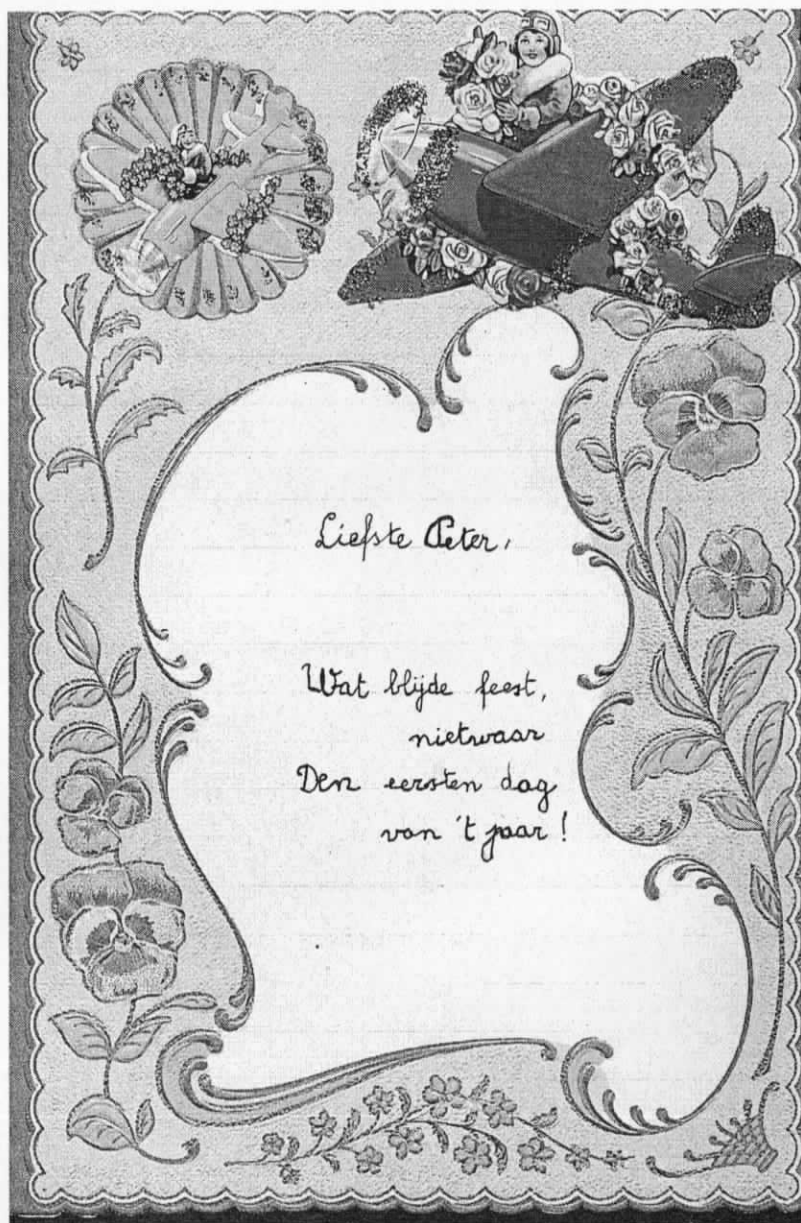 Liefste Peter,
Wat blijde feest,
nietwaar
Den eersten dag
van 't jaar!